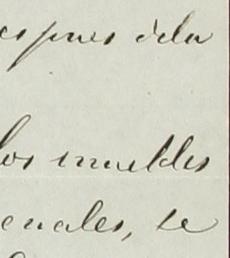 espues dela
los muebles
cuales, se